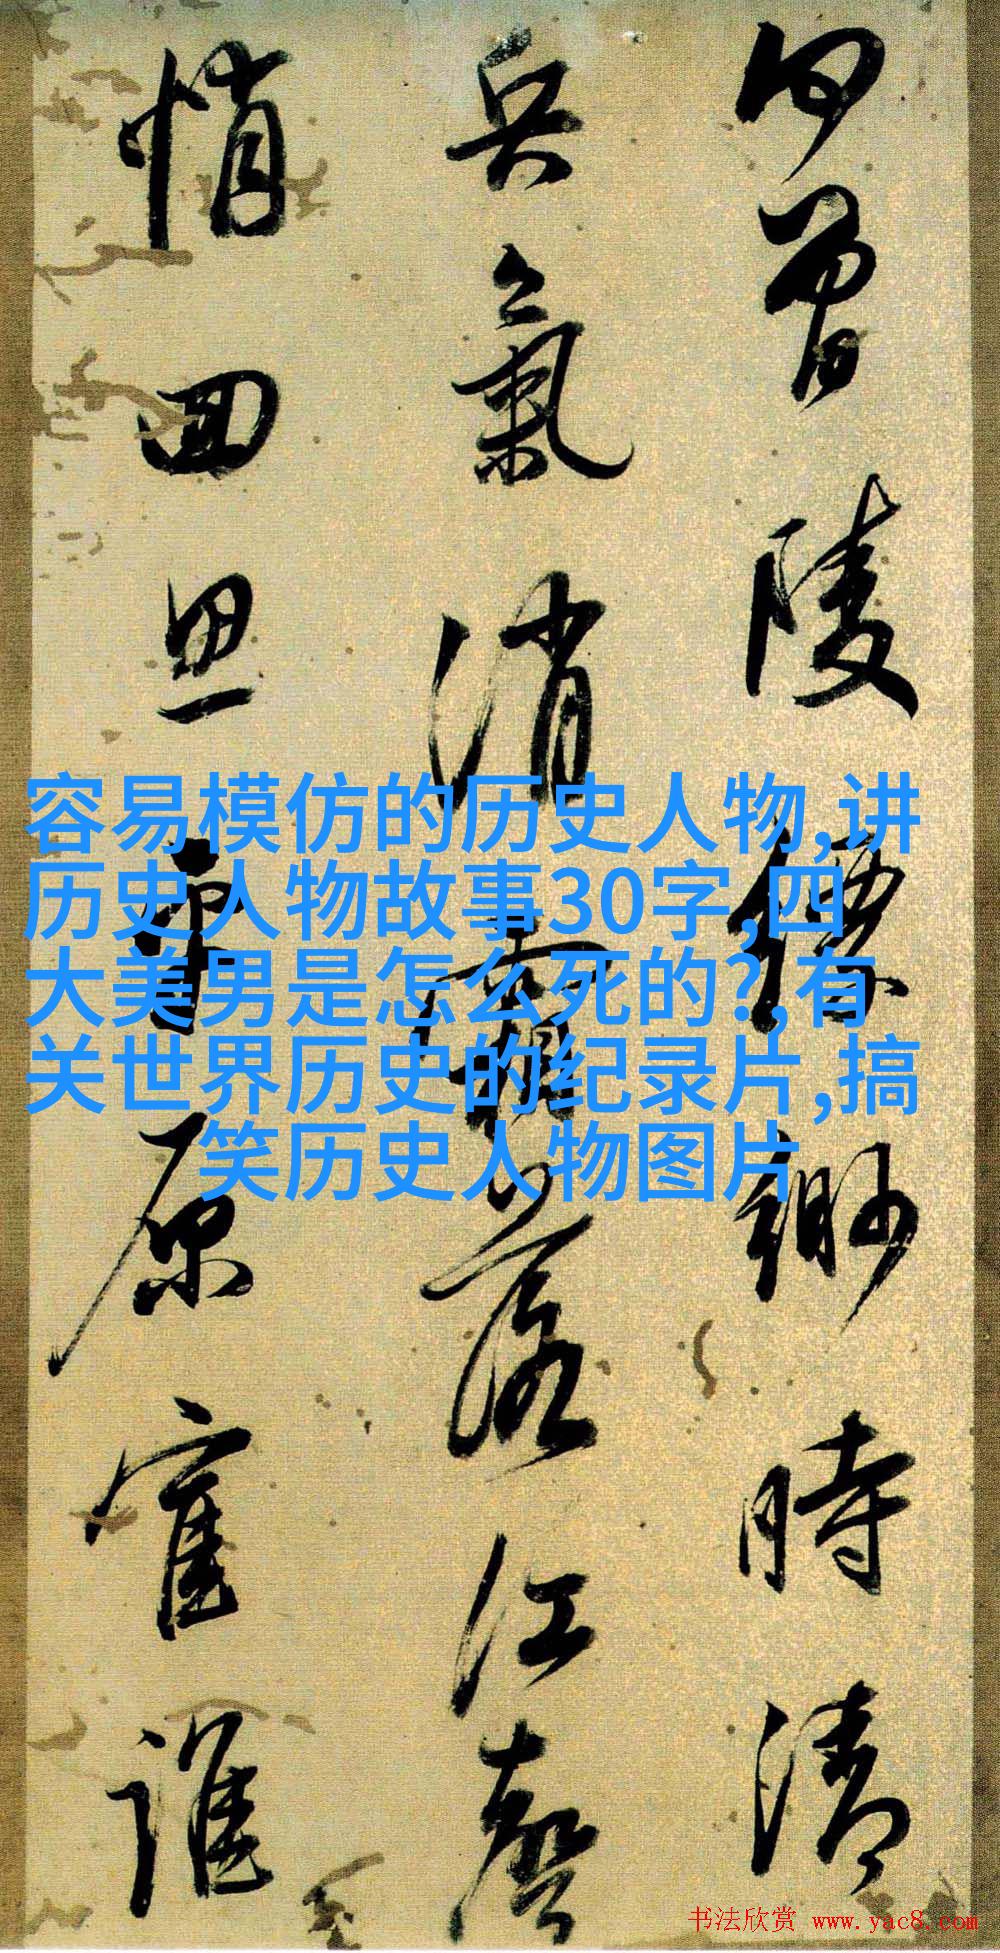 何曾陵缥缈時清
兵氣消寒落江聲
悄回思平原宦誰
容易模仿的历史人物,讲
历史人物故事30字,四
大美男是怎么死的?,有
关世界历史的纪录片,搞
笑历史人物图片
书法欣赏 www.yac8.com